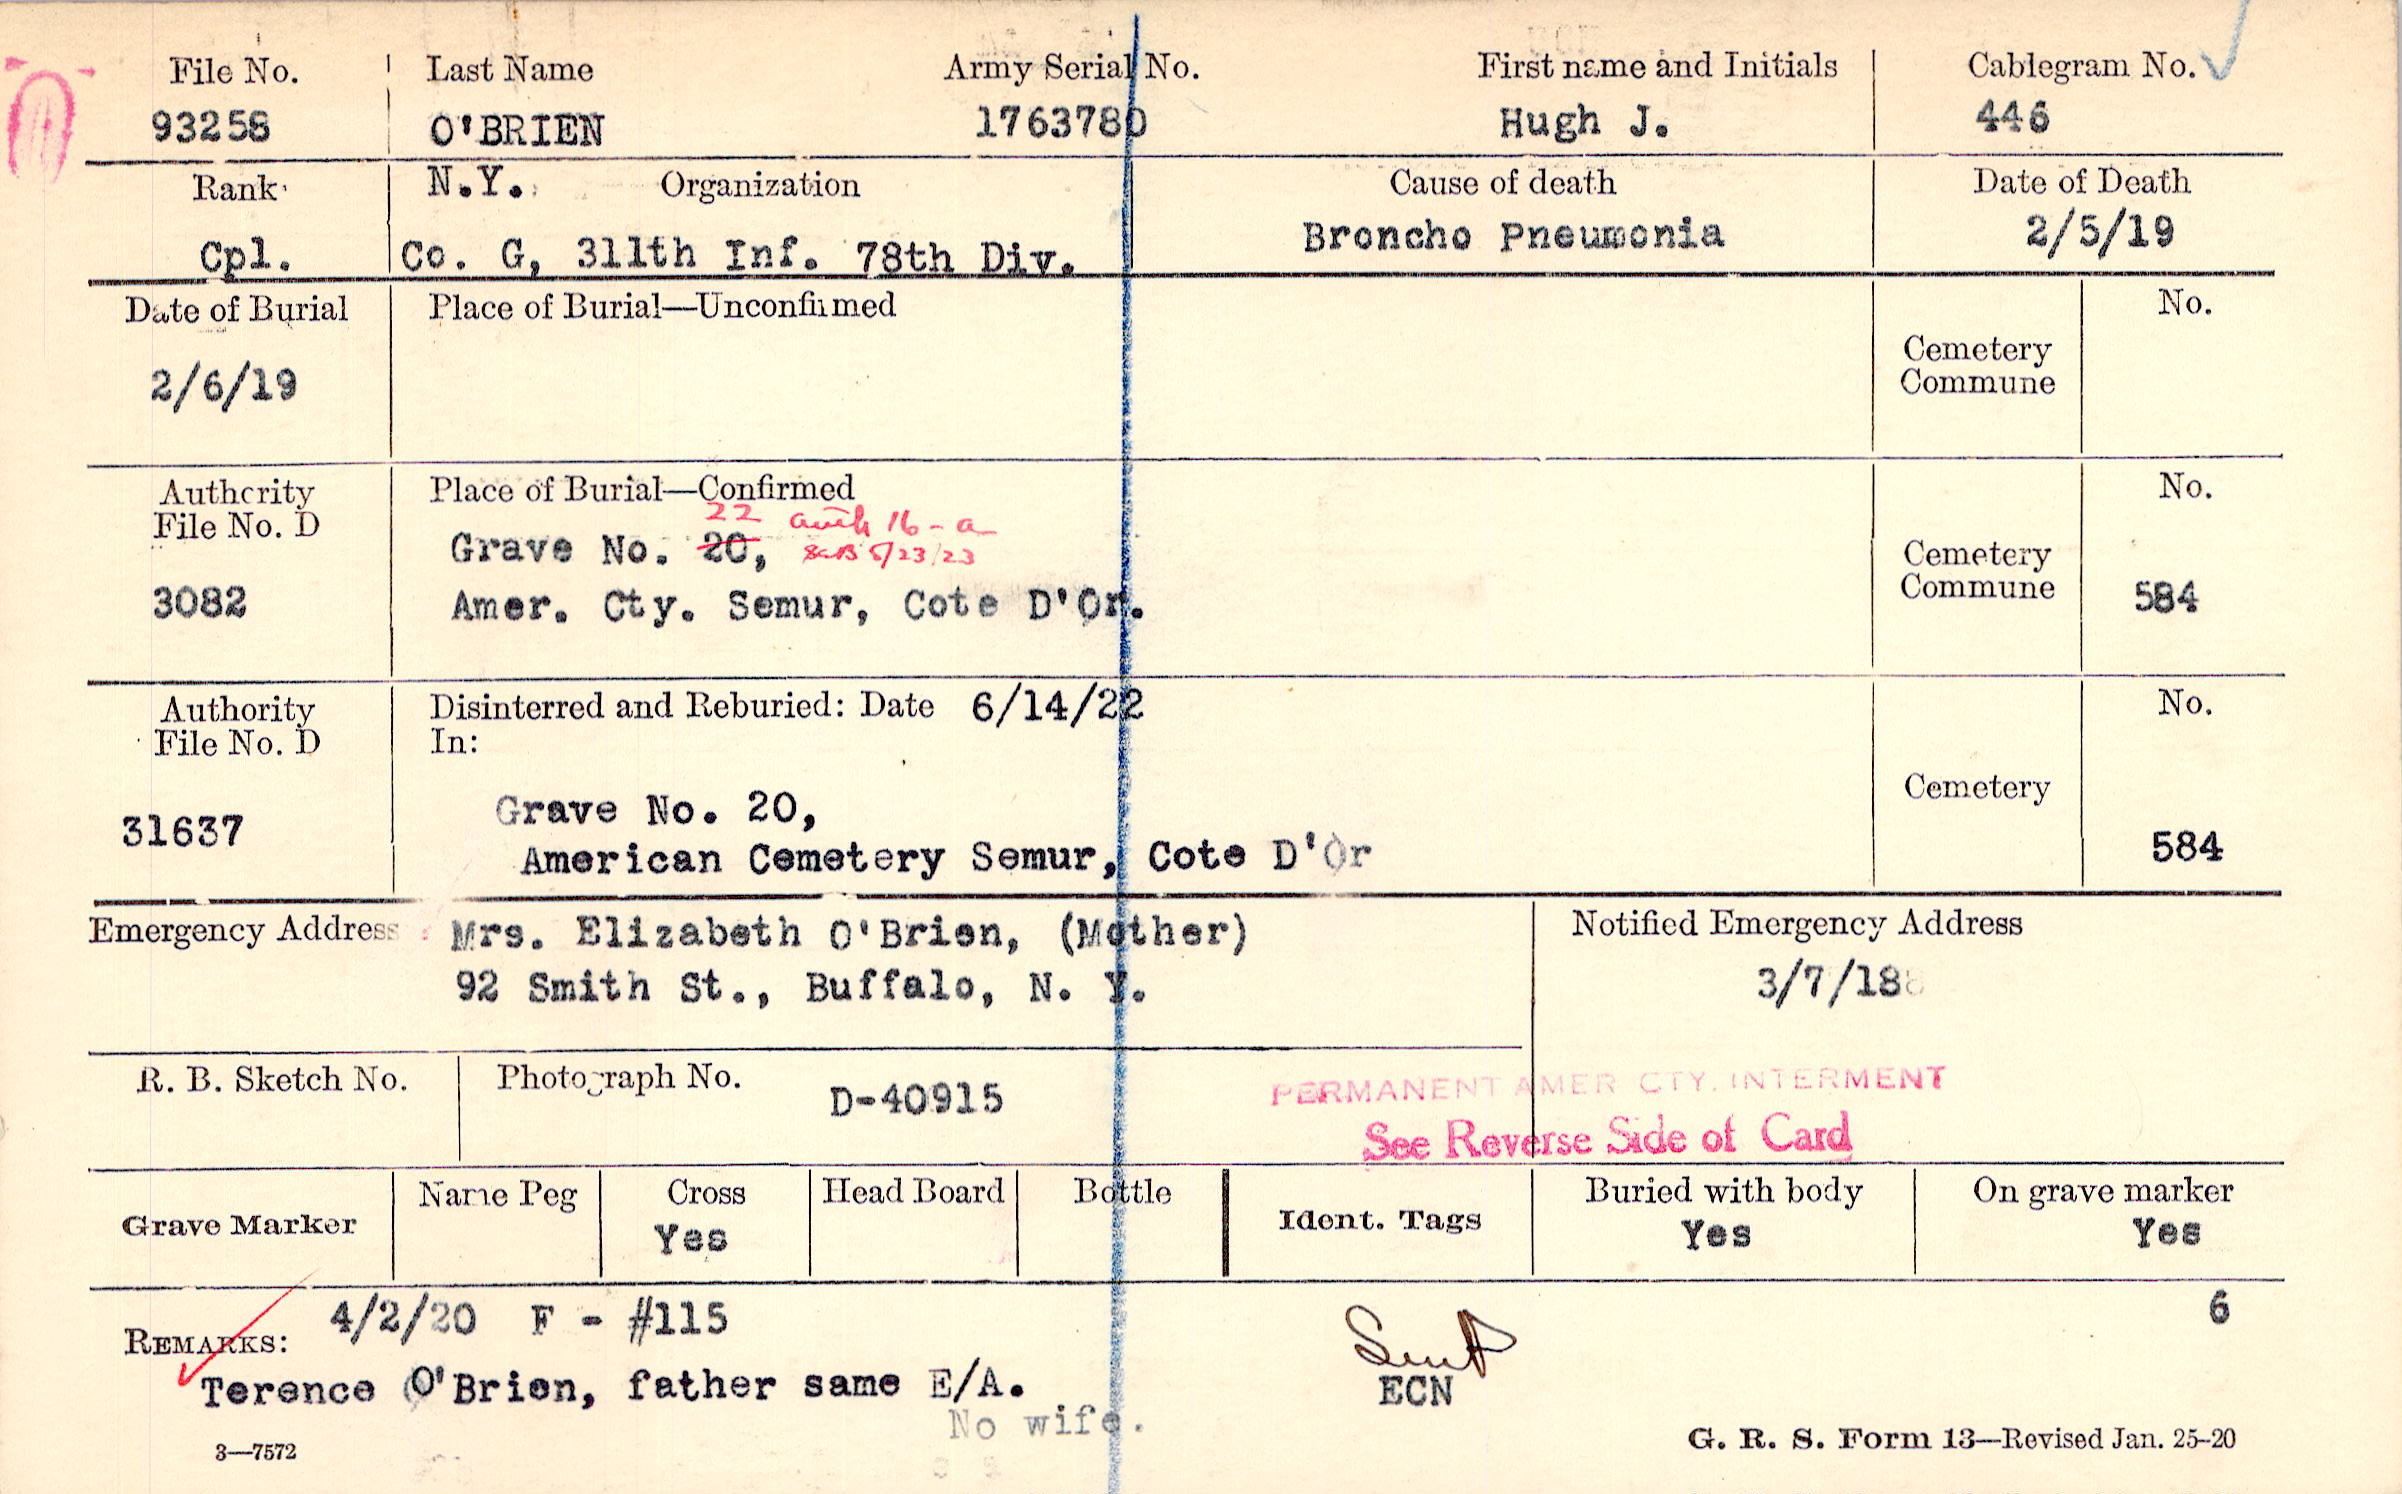 File No. Last Name Army Serial No. First name and Initials Cablegram No.
93258 O'BRIEN 1763780 Hugh J. 446
Rank N.Y. Organization Cause of death Date of Death
Cpl. Co. G, 311th Inf. 78th Div. Broncho Pneumonia 2/5/19
Date of Burial Place of Burial—Unconfirmed No.
2/6/19 Cemetery
Commune
Authority Place of Burial—Confirmed No.
File No. D 22 auth 16-a
Grave No. 20, 5/23/23 Cemetery
3082 Amer. Cty. Semur, Cote D'Or. Commune 584
Authority Disinterred and Reburied: Date 6/14/22 No.
File No. D In:
Grave No. 20, Cemetery
31637 American Cemetery Semur, Cote D'Or 584
Emergency Address Mrs. Elizabeth O'Brien, (Mother) Notified Emergency Address
92 Smith St., Buffalo, N. Y. 3/7/18
R. B. Sketch No. Photograph No. D-40915 PERMANENT AMER CTY. INTERMENT
See Reverse Side of Card
Grave Marker Name Peg Cross Head Board Bottle Ident. Tags Buried with body On grave marker
Yes Yes Yes
REMARKS: 4/2/20 F - #115 6
Terence O'Brien, father same E/A. ECN
No wife.
3—7572 G. R. S. Form 13—Revised Jan. 25-20